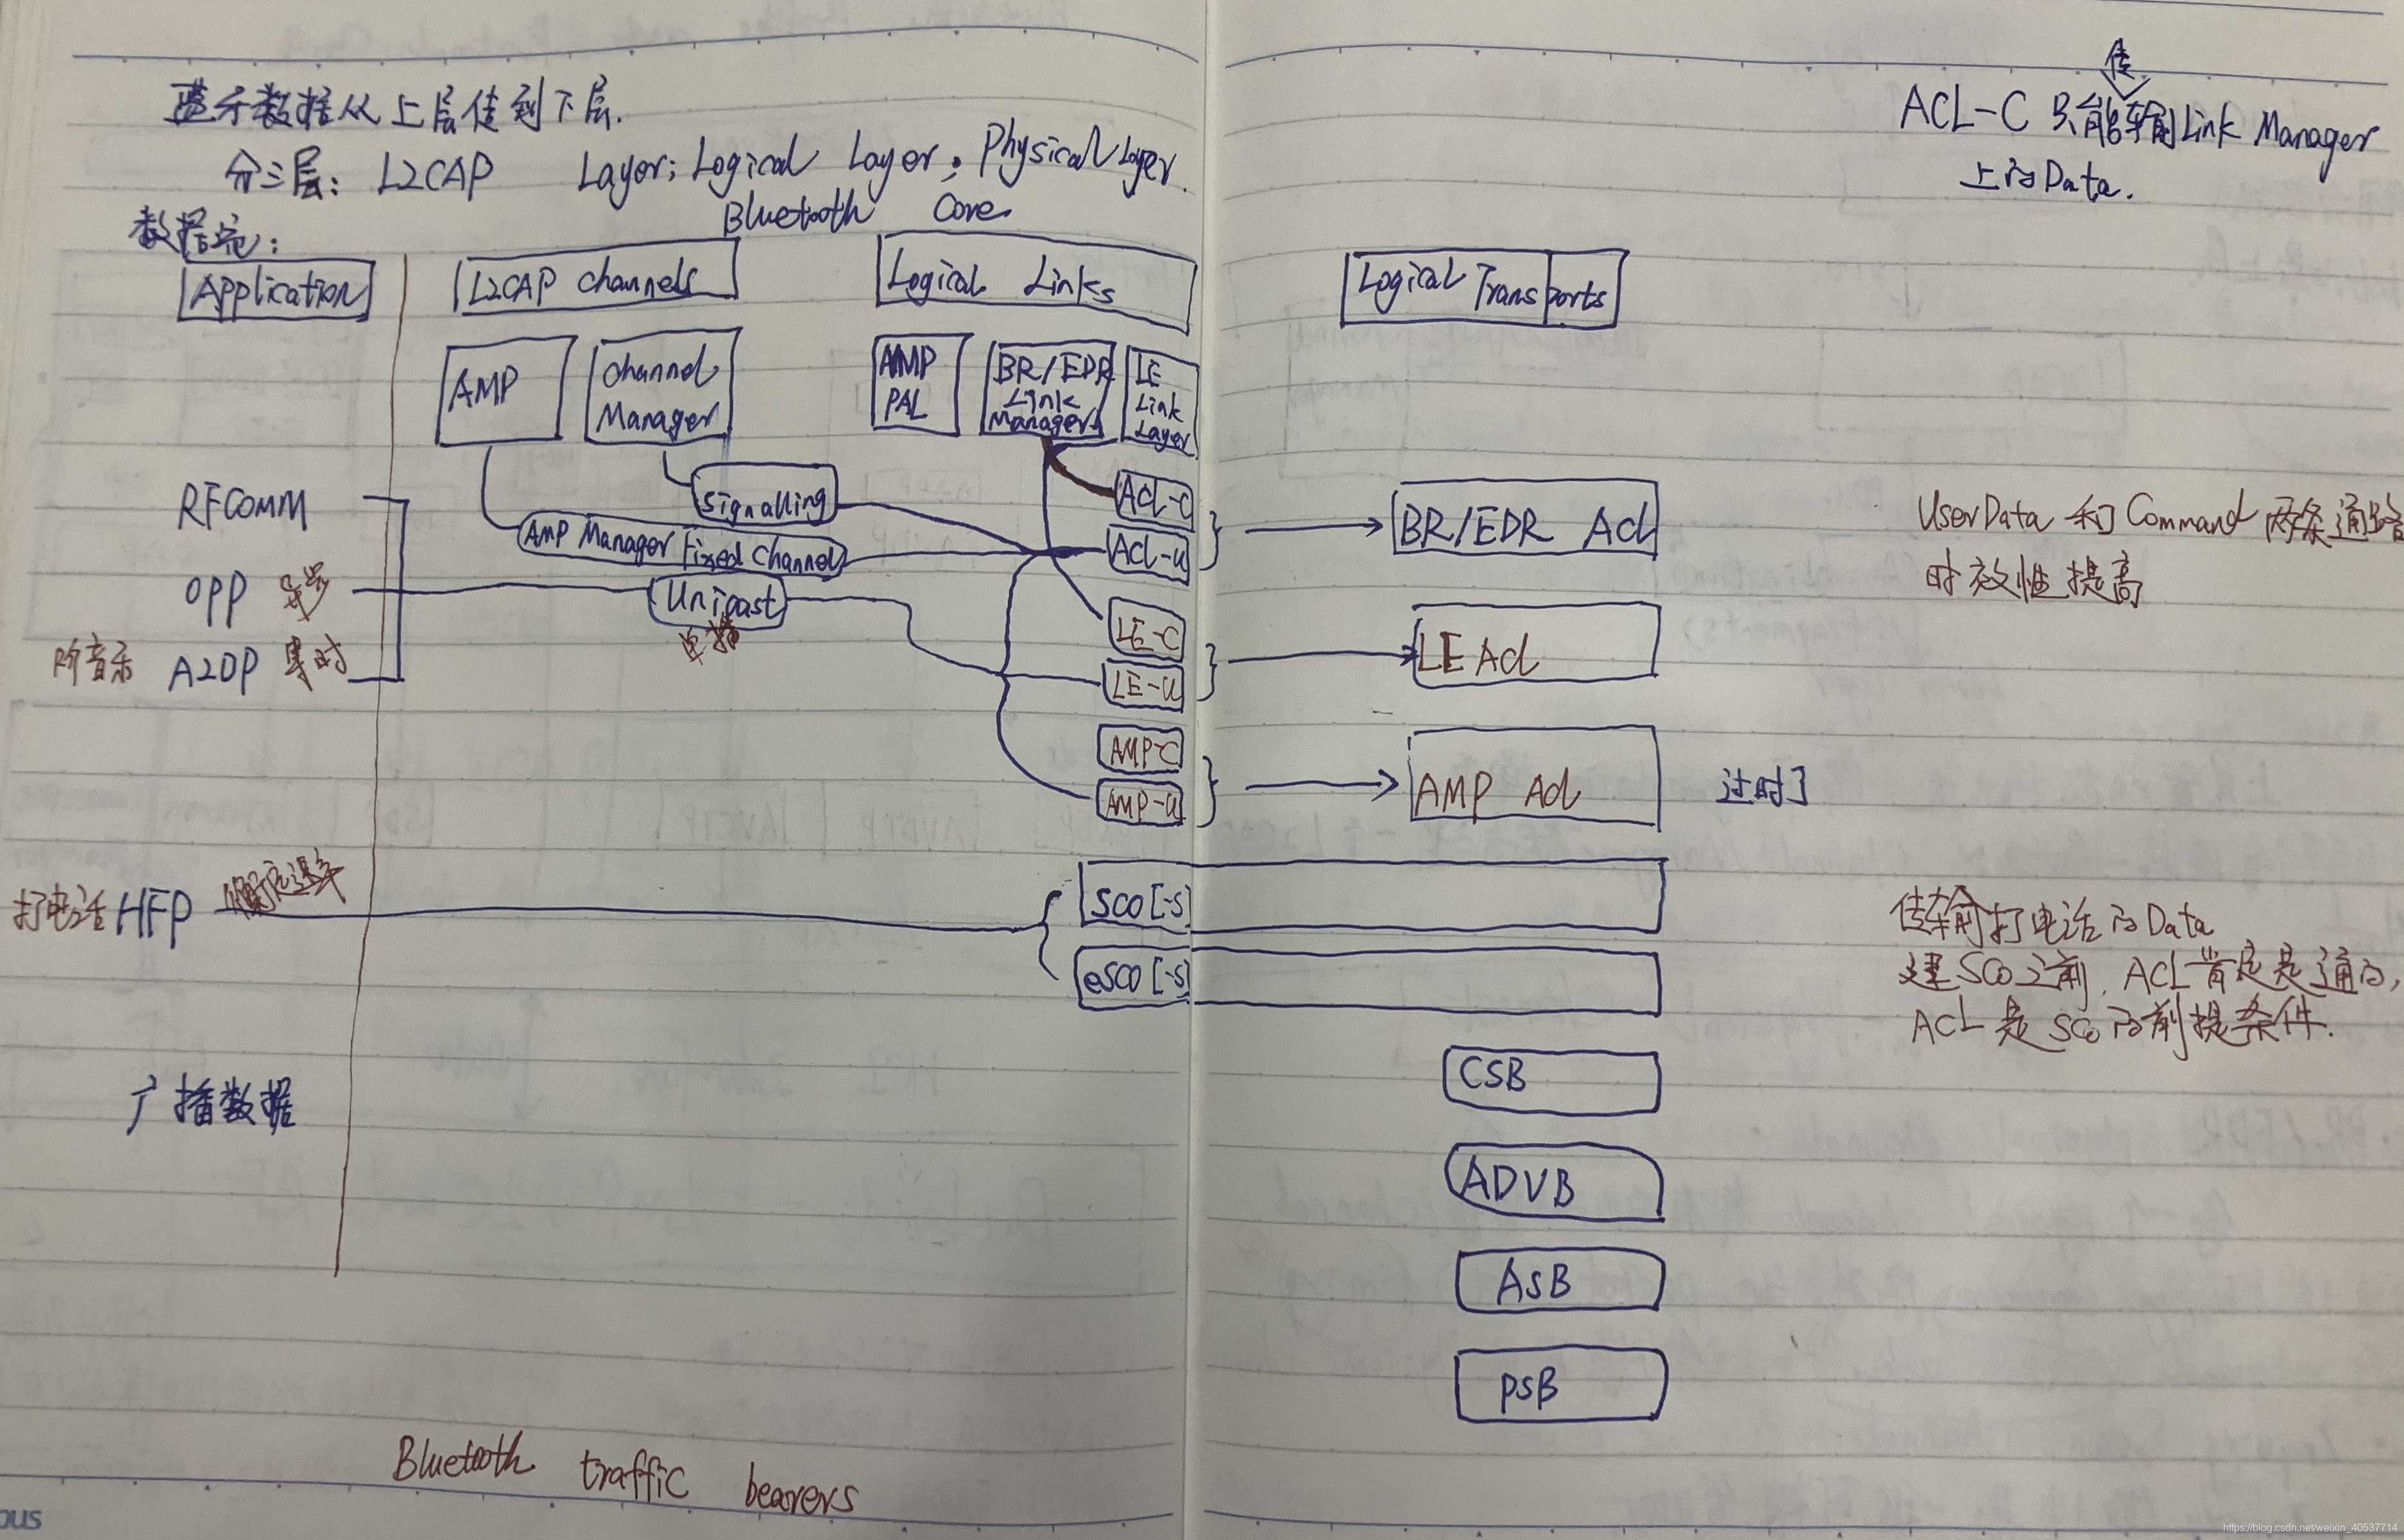 蓝牙数据从上层传到下层.
分三层: L2CAP Layer; Logical Layer, Physical Layer.
Bluetooth Core
数据流:
Application
L2CAP channels
Logical Links
AMP
Channel Manager
AMP PAL
BR/EDR Link Managers
LE Link Layer
RFComm
OPP
听音乐 A2DP
signalling
AMP Manager Fixed Channel
Unicast
单播
ACL-C
ACL-U
LE-C
LE-U
AMP-C
AMP-U
打电话 HFP
SCO[-S]
eSCO[-S]
广播数据
Bluetooth traffic bearers
传
ACL-C 只能输Link Manager
上的Data.
Logical Transports
BR/EDR Acl
UserData 和 Command 两条通路
时效性提高
LE Acl
AMP Acl
过时了
传输打电话的Data
建SCO之前, ACL肯定是通的,
ACL是SCO的前提条件.
CSB
ADVB
ASB
PSB
ous
https://blog.csdn.net/weixin_40537714